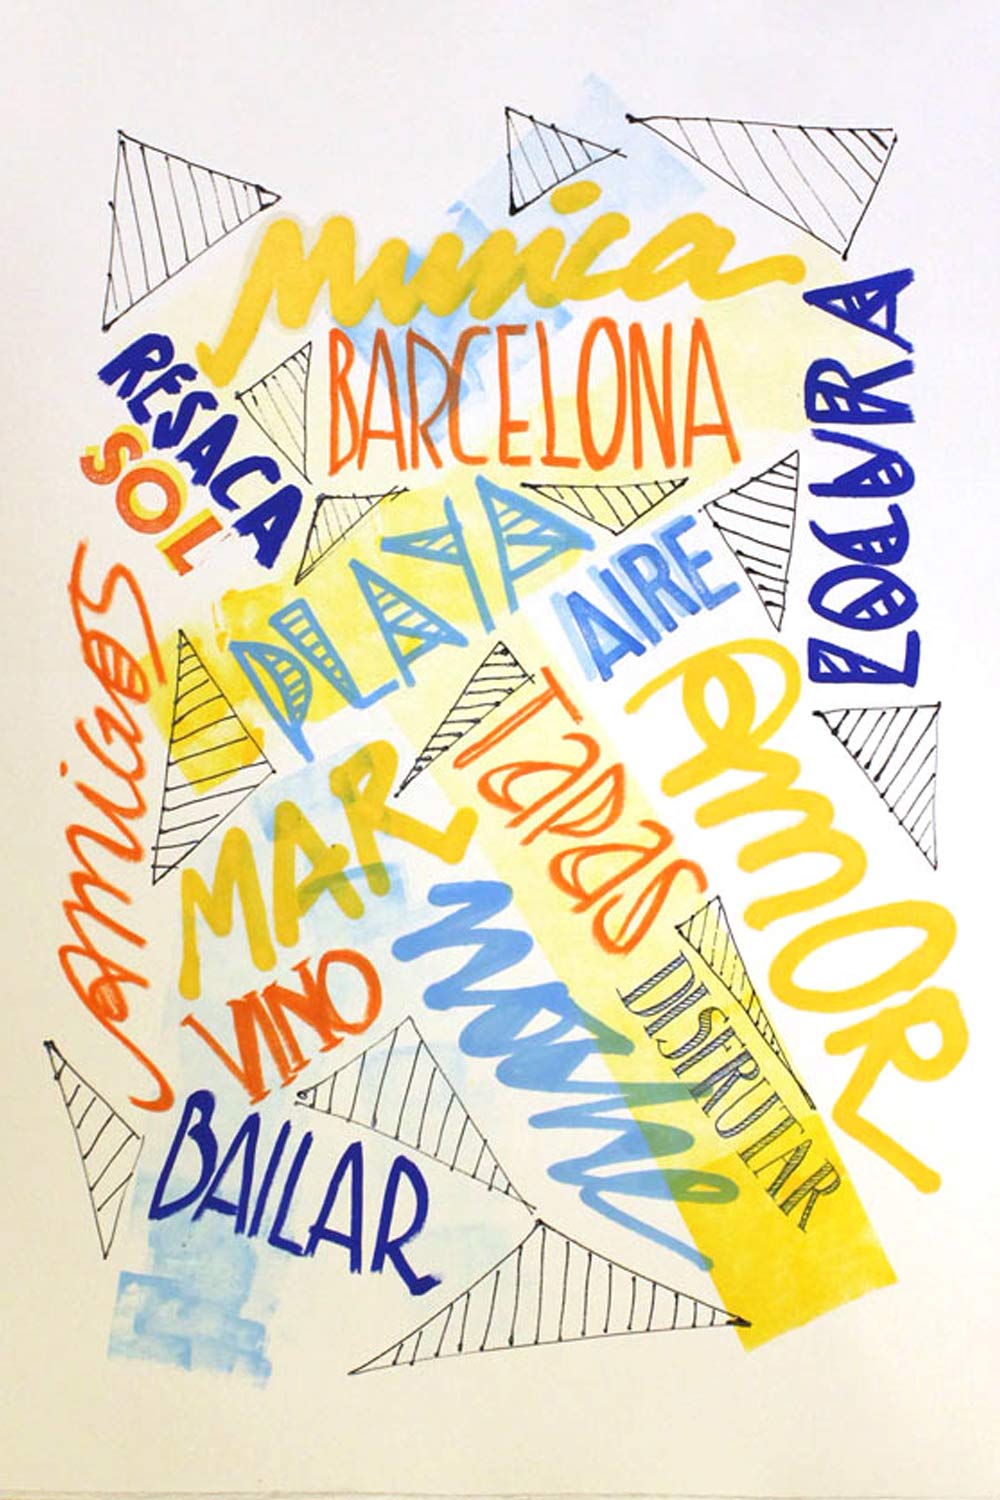 musica
BARCELONA
LOCURA
RESACA
SOL
PLAYA
AIRE
amigos
Tapas
amoR
MAR
noche
VINO
DISFRUTAR
BAILAR